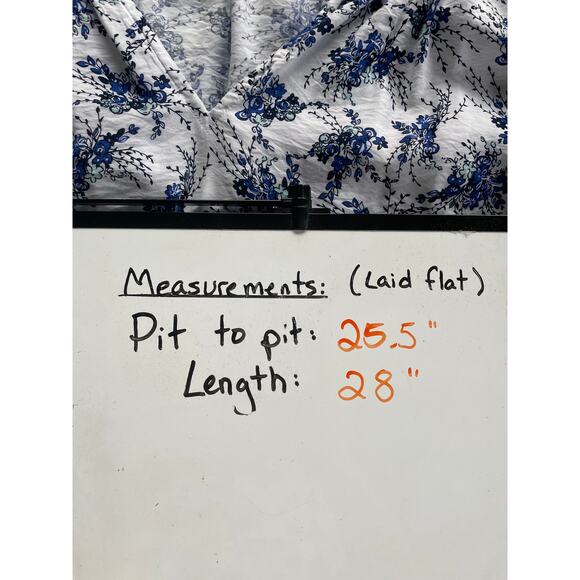 Measurements: (Laid flat)
Pit to pit: 25.5"
Length: 28"